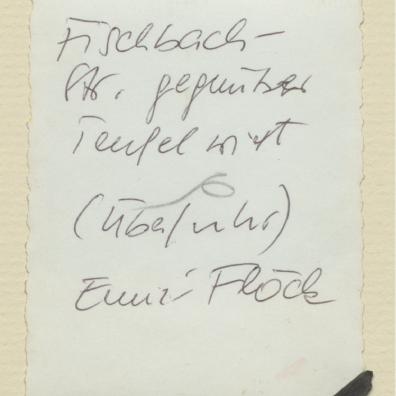 Fischbach-
Str. gegenüber
Teufelwirt
(Überfuhr)
Emmi Flöck